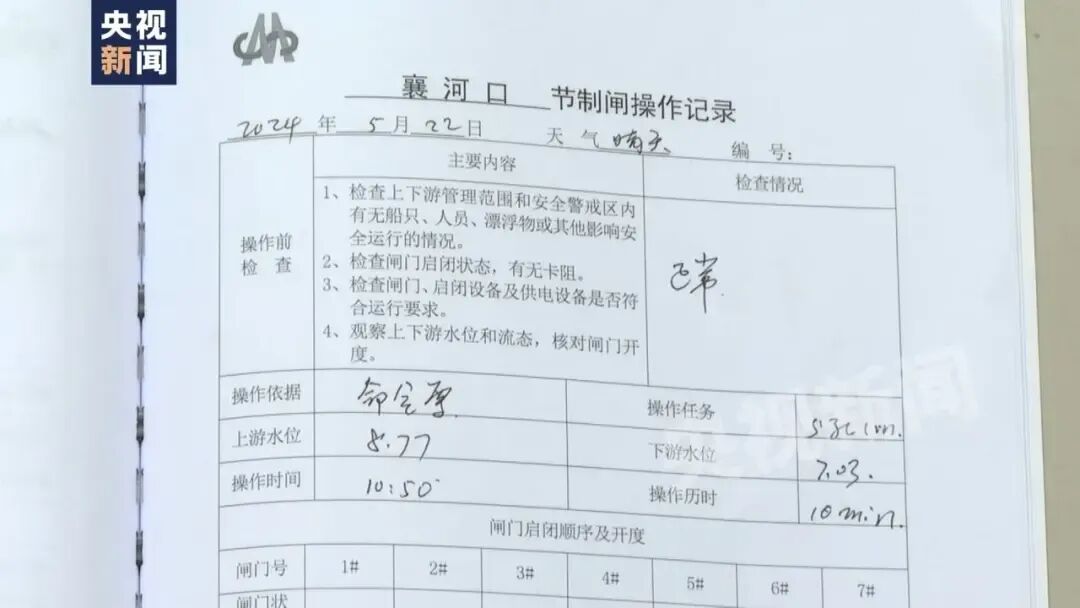 央视
新闻
襄河口 节制闸操作记录
2024 年 5 月 22 日 天气 晴天 编号:
主要内容 检查情况
操作前
检查
1、检查上下游管理范围和安全警戒区内
有无船只、人员、漂浮物或其他影响安
全运行的情况。
2、检查闸门启闭状态,有无卡阻。
3、检查闸门、启闭设备及供电设备是否符
合运行要求。
4、观察上下游水位和流态,核对闸门开
度。
正常
操作依据 操作任务 5孔1m.
上游水位 8.77 下游水位 7.03.
操作时间 10:50 操作历时 10min.
闸门启闭顺序及开度
闸门号 1# 2# 3# 4# 5# 6# 7#
闸门状
央视新闻